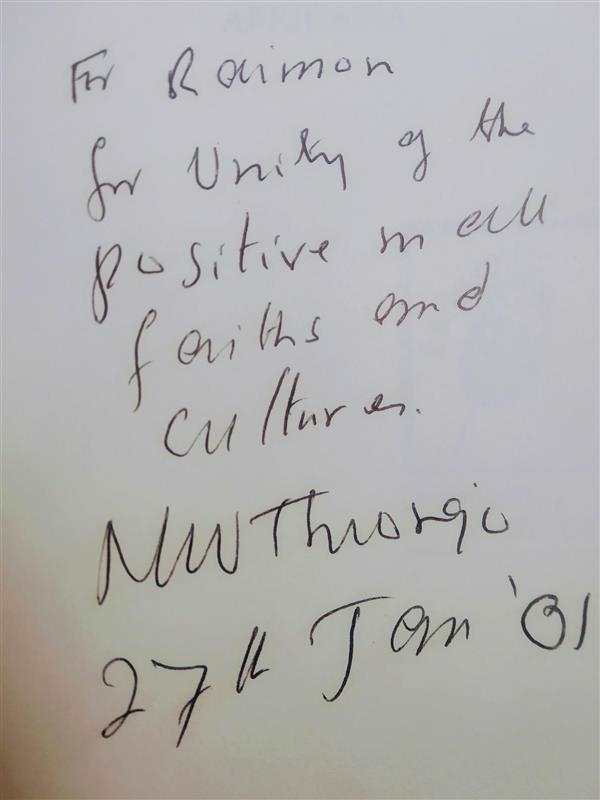 For Raimon
for Unity of the
positive in all
faiths and
cultures.
NWThiong'o
27th Jan '01